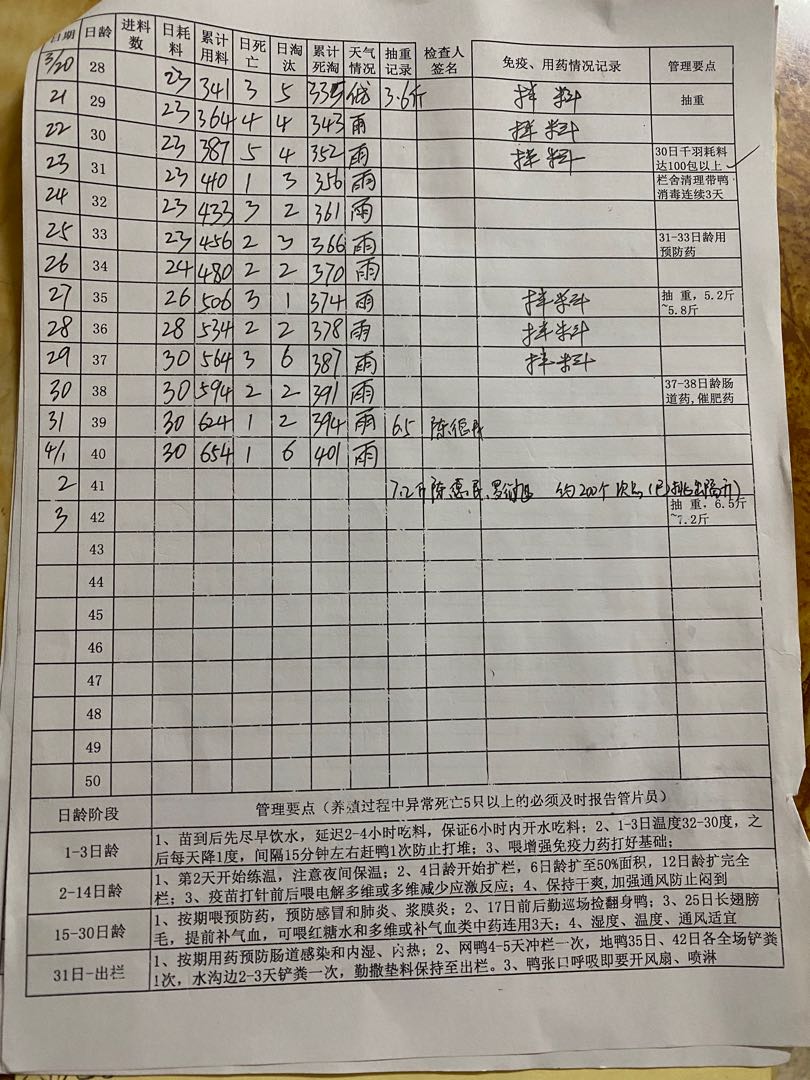 日期 日龄 进料数 日耗料 累计用料 日死亡 日淘汰 累计死淘 天气情况 抽重记录 检查人签名 免疫、用药情况记录 管理要点
3/20 28 23 341 3 5 335 3.6斤 拌料 抽重
21 29 23 364 4 4 343 雨 拌料
22 30 23 387 5 4 352 雨 拌料 30日千羽耗料达100包以上
23 31 23 410 1 3 356 雨 栏舍清理带鸭消毒连续3天
24 32 23 433 3 2 361 雨
25 33 23 456 2 3 366 雨 31-33日龄用预防药
26 34 24 480 2 2 370 雨
27 35 26 506 3 1 374 雨 拌料 抽 重，5.2斤~5.8斤
28 36 28 534 2 2 378 雨 拌料
29 37 30 564 3 6 387 雨 拌料
30 38 30 594 2 2 391 雨 37-38日龄肠道药,催肥药
31 39 30 624 1 2 394 雨 6.5
4/1 40 30 654 1 6 401 雨
2 41 7.2斤 约200个
3 42 抽 重，6.5斤~7.2斤
43
44
45
46
47
48
49
50
日龄阶段 管理要点（养殖过程中异常死亡5只以上的必须及时报告管片员）
1-3日龄 1、苗到后先尽早饮水，延迟2-4小时吃料，保证6小时内开水吃料；2、1-3日温度32-30度，之
后每天降1度，间隔15分钟左右赶鸭1次防止打堆；3、喂增强免疫力药打好基础；
2-14日龄 1、第2天开始练温，注意夜间保温；2、4日龄开始扩栏，6日龄扩至50%面积，12日龄扩完全
栏；3、疫苗打针前后喂电解多维或多维减少应激反应；4、保持干爽,加强通风防止闷到
15-30日龄 1、按期喂预防药，预防感冒和肺炎、浆膜炎；2、17日前后勤巡场捡翻身鸭；3、25日长翅膀
毛，提前补气血，可喂红糖水和多维或补气血类中药连用3天；4、湿度、温度、通风适宜
31日-出栏 1、按期用药预防肠道感染和内湿、内热；2、网鸭4-5天冲栏一次，地鸭35日、42日各全场铲粪
1次，水沟边2-3天铲粪一次，勤撒垫料保持至出栏。3、鸭张口呼吸即要开风扇、喷淋